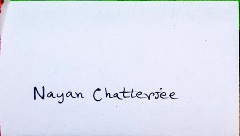 Nayan Chatterjee